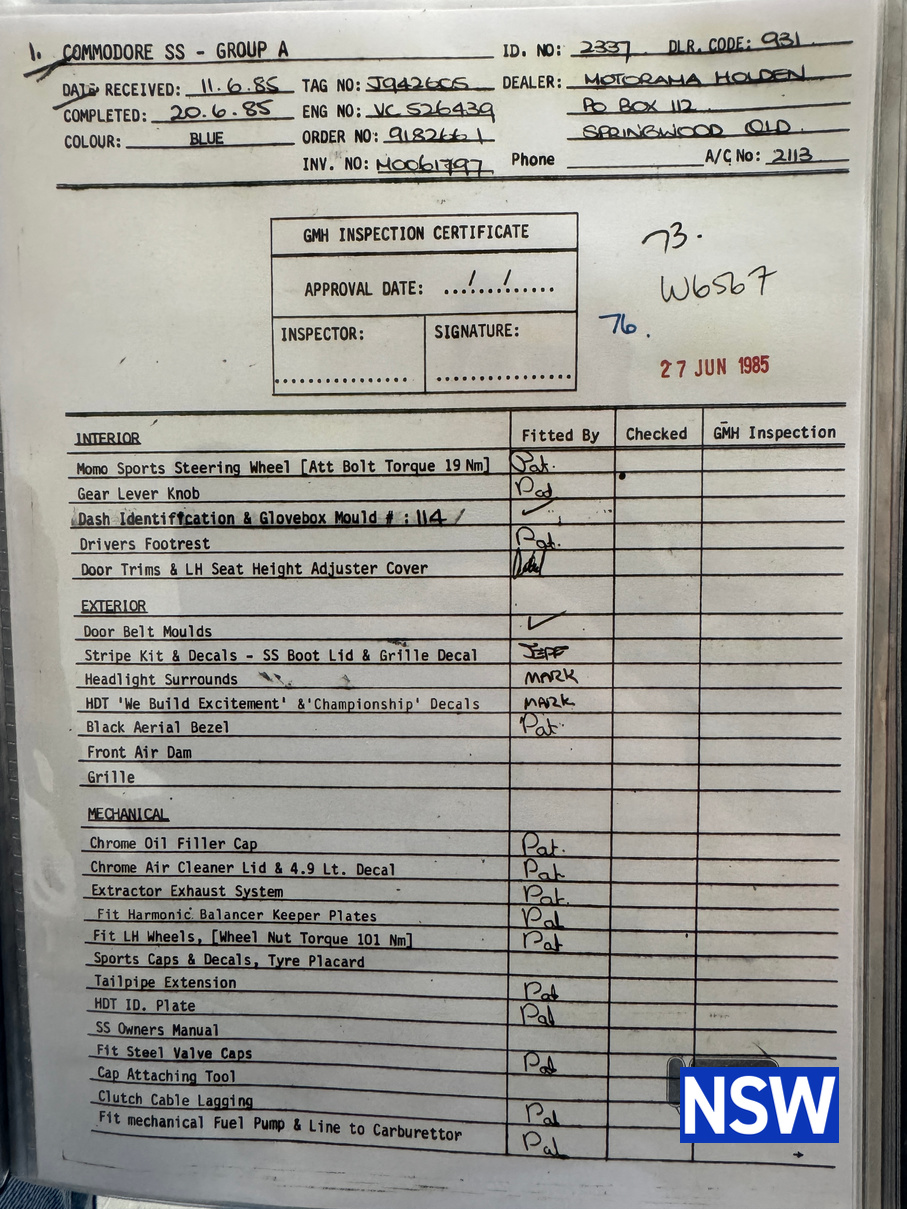 1. COMMODORE SS - GROUP A ID. NO: 2337 DLR. CODE: 931
DATE RECEIVED: 11.6.85 TAG NO: J942605 DEALER: MOTORAMA HOLDEN
COMPLETED: 20.6.85 ENG NO: VC 526439 PO BOX 112
COLOUR: BLUE ORDER NO: 9182661 SPRINGWOOD QLD.
INV. NO: M0061797 Phone A/C No: 2113
GMH INSPECTION CERTIFICATE
APPROVAL DATE: .../.../......
INSPECTOR: SIGNATURE:
73.
W6567
76.
27 JUN 1985
INTERIOR Fitted By Checked GMH Inspection
Momo Sports Steering Wheel [Att Bolt Torque 19 Nm] Pat.
Gear Lever Knob Pat
Dash Identification & Glovebox Mould # : 114 / ✓
Drivers Footrest Pat.
Door Trims & LH Seat Height Adjuster Cover
EXTERIOR
Door Belt Moulds ✓
Stripe Kit & Decals - SS Boot Lid & Grille Decal JEFF
Headlight Surrounds MARK
HDT 'We Build Excitement' &'Championship' Decals MARK
Black Aerial Bezel Pat.
Front Air Dam
Grille
MECHANICAL
Chrome Oil Filler Cap Pat.
Chrome Air Cleaner Lid & 4.9 Lt. Decal Pat
Extractor Exhaust System Pat.
Fit Harmonic Balancer Keeper Plates Pat
Fit LH Wheels, [Wheel Nut Torque 101 Nm] Pat
Sports Caps & Decals, Tyre Placard
Tailpipe Extension Pat
HDT ID. Plate Pat
SS Owners Manual
Fit Steel Valve Caps Pat
Cap Attaching Tool
Clutch Cable Lagging Pat
Fit mechanical Fuel Pump & Line to Carburettor Pat
NSW